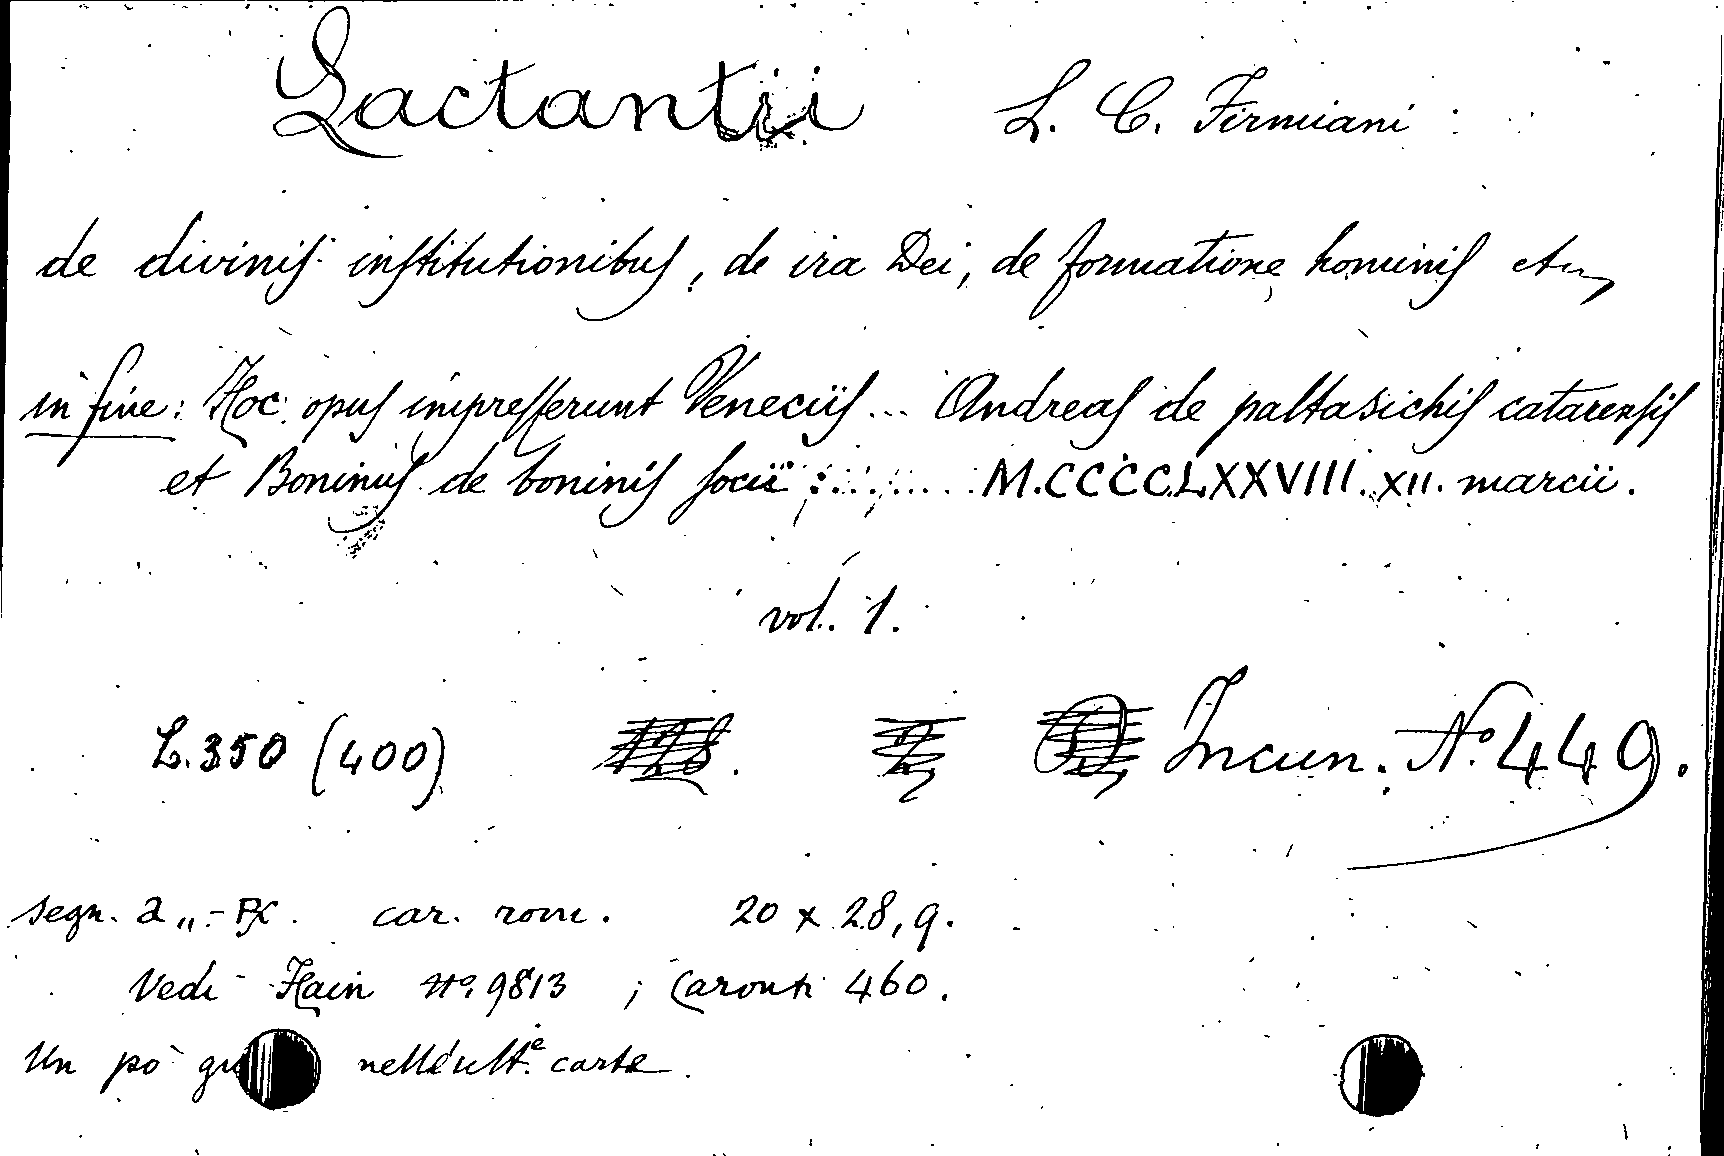 Lactantii L. C. Firmiani:
de divinis institutionibus, de ira Dei, de formatione hominis etc
in fine: Hoc opus impresserunt Veneciis ... Andreas de paltasichis catarensis
et Boninus de boninis socii ........ M.CCCCLXXVIII. XII. marcii.
vol. 1.
L. 350 (400) Incun. No. 449.
segn. a,, - car. rom. 20 x 28,9.
Vedi Hain no. 9813 ; Caronti 460.
Un pò nelle ult.e carte